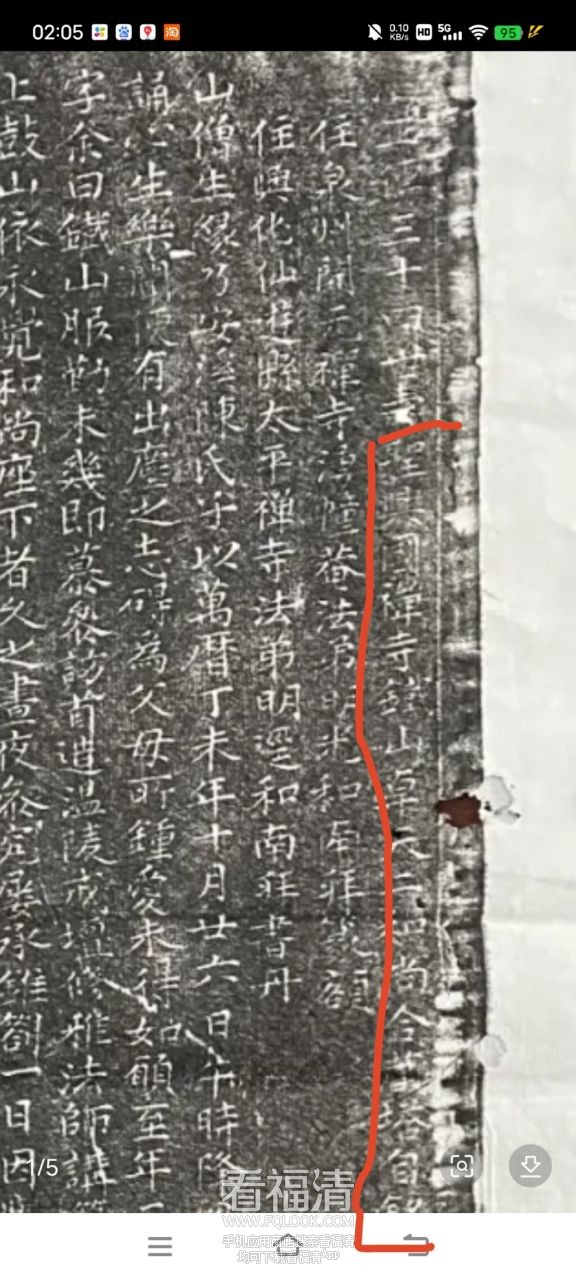 02:05
0.10 KB/s HD 5G 95
三十四世壽聖興國禪寺鐵山卓元二和尚合葬塔自銘
住泉州開元禪寺法弟明光和南拜篆額
住興化仙遊縣太平禪寺法弟明逕和南拜書丹
山僧生緣乃安溪陳氏子以萬曆丁未年十月廿六日午時降
誦心生樂聞便有出塵之志礙為父母所鍾愛未得如願至年
字余曰鐵山服勤未幾即慕參訪首造溫陵戒壇修雅法師講
上鼓山依永覺和尚座下者久之晝夜參究屢承錐劄一日因
1/5
看福清
WWW.FQLOOK.COM
手机应用商店搜索看福清
均可下载看福清App